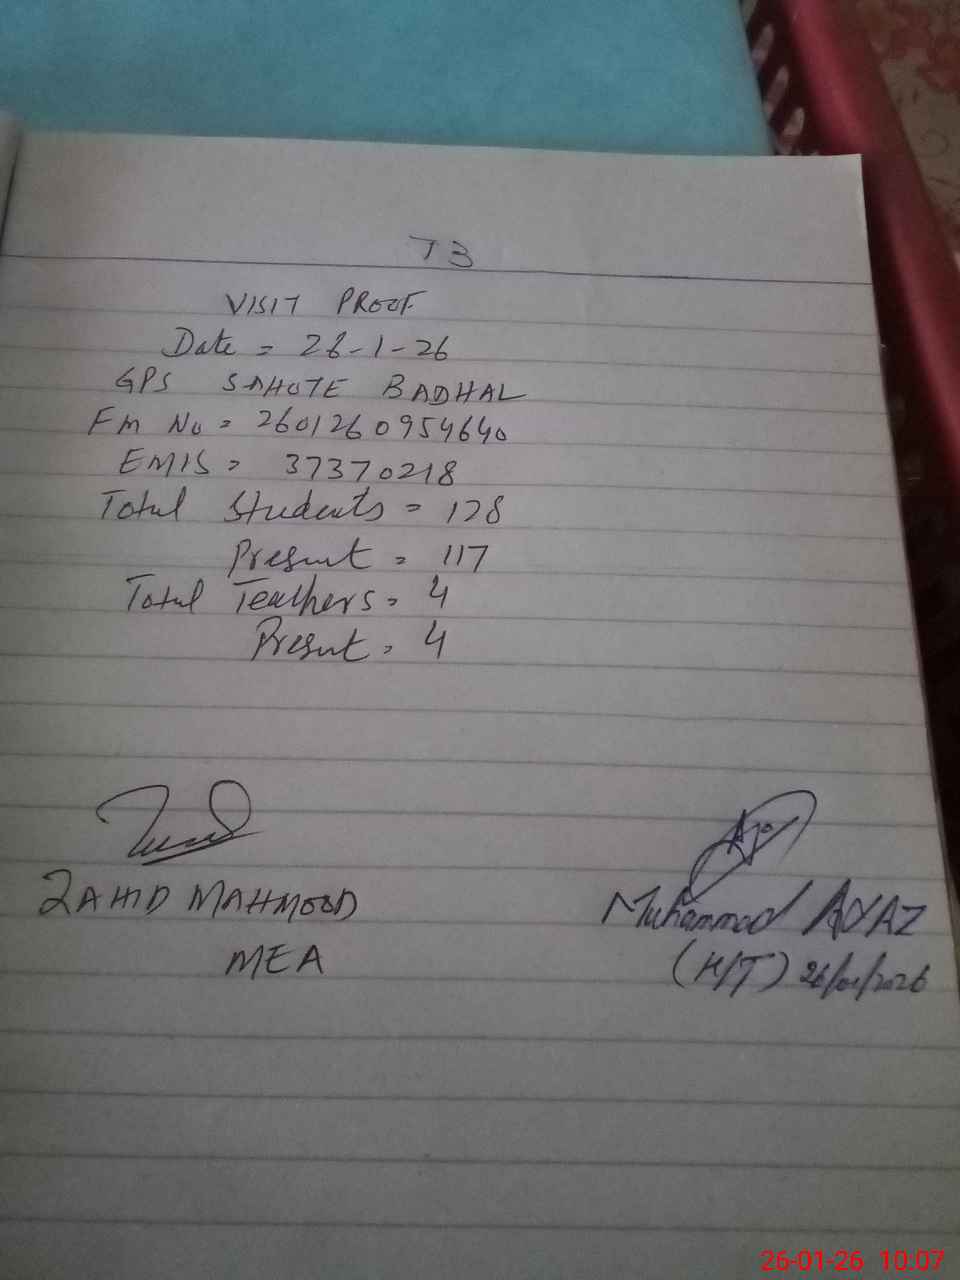 73
VISIT PROOF
Date = 26-1-26
GPS SAHOTE BADHAL
FM No = 2601260954640
EMIS = 37370218
Total Students = 128
Present = 117
Total Teachers = 4
Present = 4
ZAHID MAHMOOD
MEA
Muhammad AYAZ
(H/T) 26/01/2026
26-01-26 10:07